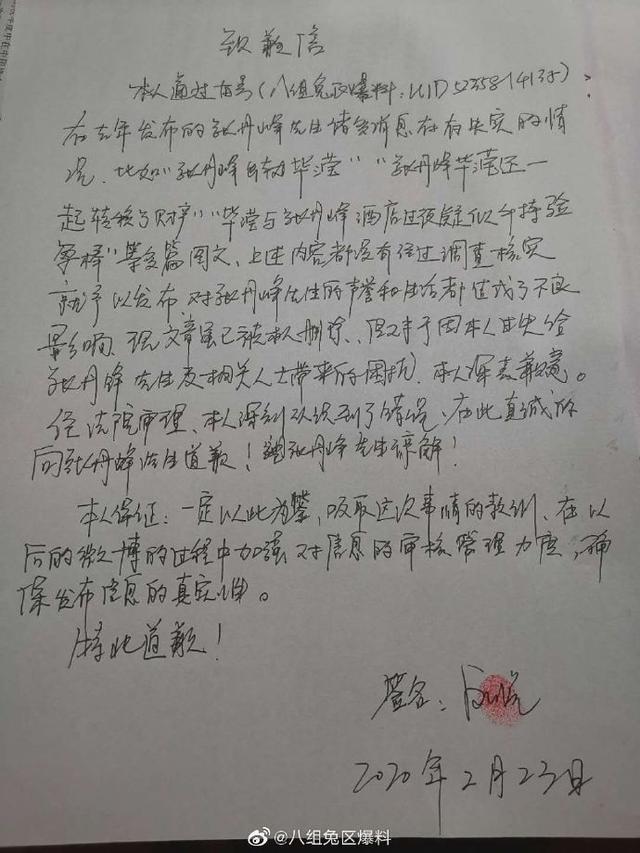 致歉信
本人通过帐号(八组兔区爆料:UID 5235814135)
在去年发布的张丹峰先生诸多消息存在失实的情
况,比如"张丹峰毕滢""张丹峰毕滢还一
起转移了财产""毕滢与张丹峰酒店过夜疑似手持验
孕棒"等多篇图文,上述内容都没有经过调查核实
就予以发布,对张丹峰先生的声誉和生活都造成了不良
影响,现文章虽已被本人删除,但对于因本人过失给
张丹峰先生及相关人士带来的困扰,本人深表歉意。
经法院审理,本人深刻认识到了错误,在此真诚的
向张丹峰先生道歉!望张丹峰先生谅解!
本人保证:一定以此为鉴,吸取这次事情的教训,在以
后的微博的过程中加强对信息的审核管理力度,确
保发布信息的真实性。
特此道歉!
签名:
2020年2月23日
@八组兔区爆料